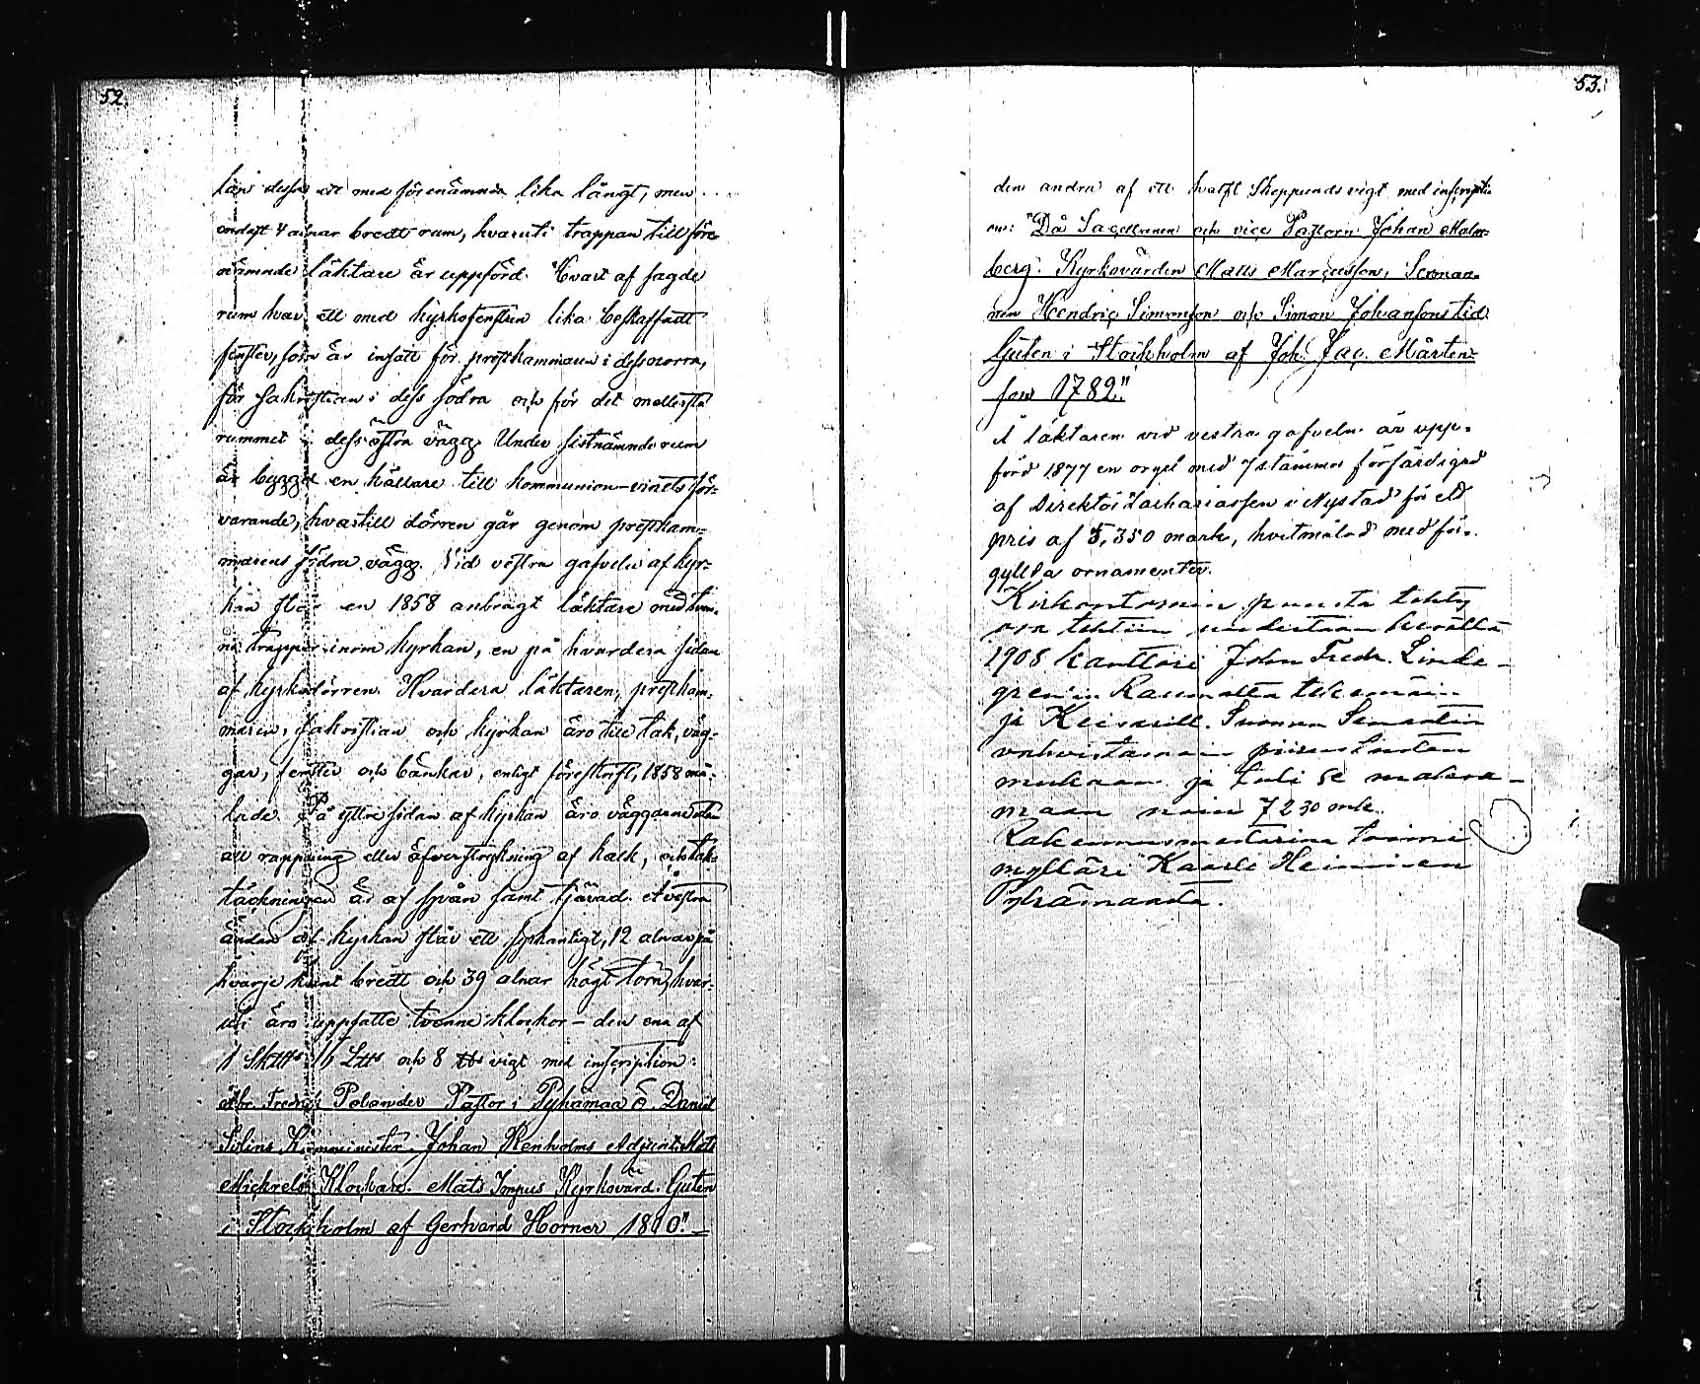 52.
lan dessa ett med förenämnde lika långt, men
endast 4 alnar bredt rum, hvaruti trappan till före
nämnde läktare är uppförd. Hvart af sagde
rum har ett med kyrkofenstren lika beskaffadt
fenster, som är insatt för prestkammaren i dess norra,
för sakristian i dess södra och för det mellersta
rummet i dess östra vägg. Under sistnämnde rum
är byggd en källare till kommunion-vinets för-
varande, hvartill dörren går genom prestkam-
marens södra vägg. Vid vestra gafveln af kyr-
kan står en 1858 anbragt läktare med tven-
ne trappor inom kyrkan, en på hvardera sidan
af kyrkodörren. Hvardera läktaren, prestkam-
maren, sakristian och kyrkan äro till tak, väg-
gar, fenster och bänkar, enligt föreskrift, 1858 må-
lade. På yttre sidan af kyrkan äro väggarne utan
all rappning eller öfverstrykning af kalk, och tak-
täckningen är af spån samt tjärad. Å vestra
ändan af kyrkan står ett fyrkantigt, 12 alnar på
hvarje kant bredt och 39 alnar högt torn, hvar-
uti äro uppsatte tvenne klockor – den ena af
1 Sk℔ 16 L℔ och 8 ℔s vigt med inscription:
Abr. Fredric Polander Pastor i Pyhämaa O. Daniel
Johan Renholms Adjunt. Mats
Michrels Klockare. Mats Kyrkovärd. Guten
i Stockholm af Gerhard Horner 1810." –
53.
den andra af ett halft Skeppunds vigt med inscripti-
on: "Då Sacellanen och vice Pastorn Johan Malm-
berg. Kyrkovärden Matts Marcusson, Sexman-
nen Hendric Simonson och Simon Johansons tid.
Guten i Stockholm af Joh. Jac. Mårten-
son 1782."
Å läktaren vid vestra gafveln är upp-
förd 1877 en orgel med 7 stämmor förfärdigad
af Direktör Zachariassen i Nystad för ett
pris af 5,350 mark, hvitmålad med för-
gyllda ornamenter.
Kirkontornin
ora tehtiin uudestaan kesällä
1908 kanttori John Fredr. Linde-
gren'in Raumalta tekemän
ja Keisarill. Suomen Senaatin
vahvistaman piirustusten
mukaan ja tuli se maksa-
maan noin 7230 mk.
Rakennusmestarina toimi
mylläri Kaarle Heininen
Pyhämaasta.